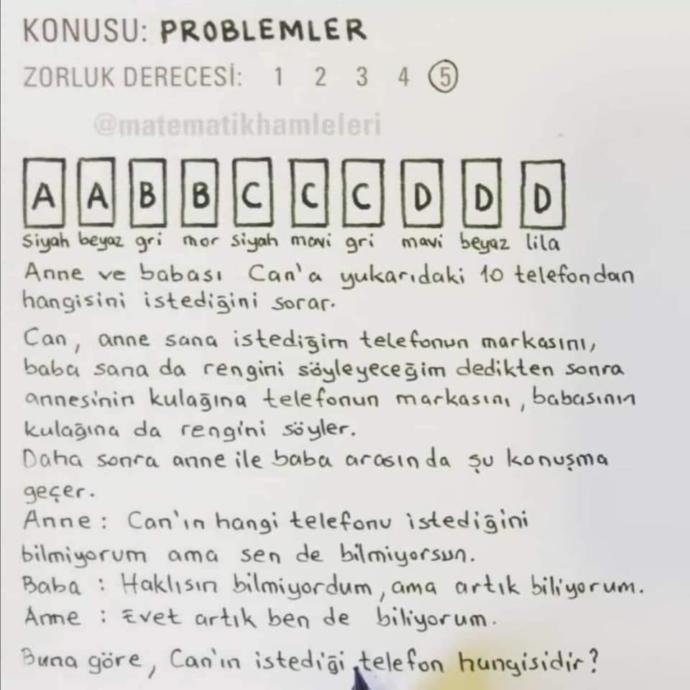 KONUSU: PROBLEMLER
ZORLUK DERECESİ: 1 2 3 4 5
@matematikhamleleri
A A B B C C C D D D
Siyah beyaz gri mor siyah mavi gri mavi beyaz lila
Anne ve babası Can'a yukarıdaki 10 telefondan
hangisini istediğini sorar.
Can, anne sana istediğim telefonun markasını,
baba sana da rengini söyleyeceğim dedikten sonra
annesinin kulağına telefonun markasını, babasının
kulağına da rengini söyler.
Daha sonra anne ile baba arasında şu konuşma
geçer.
Anne: Can'ın hangi telefonu istediğini
bilmiyorum ama sen de bilmiyorsun.
Baba: Haklısın bilmiyordum, ama artık biliyorum.
Anne: Evet artık ben de biliyorum.
Buna göre, Can'ın istediği telefon hangisidir?